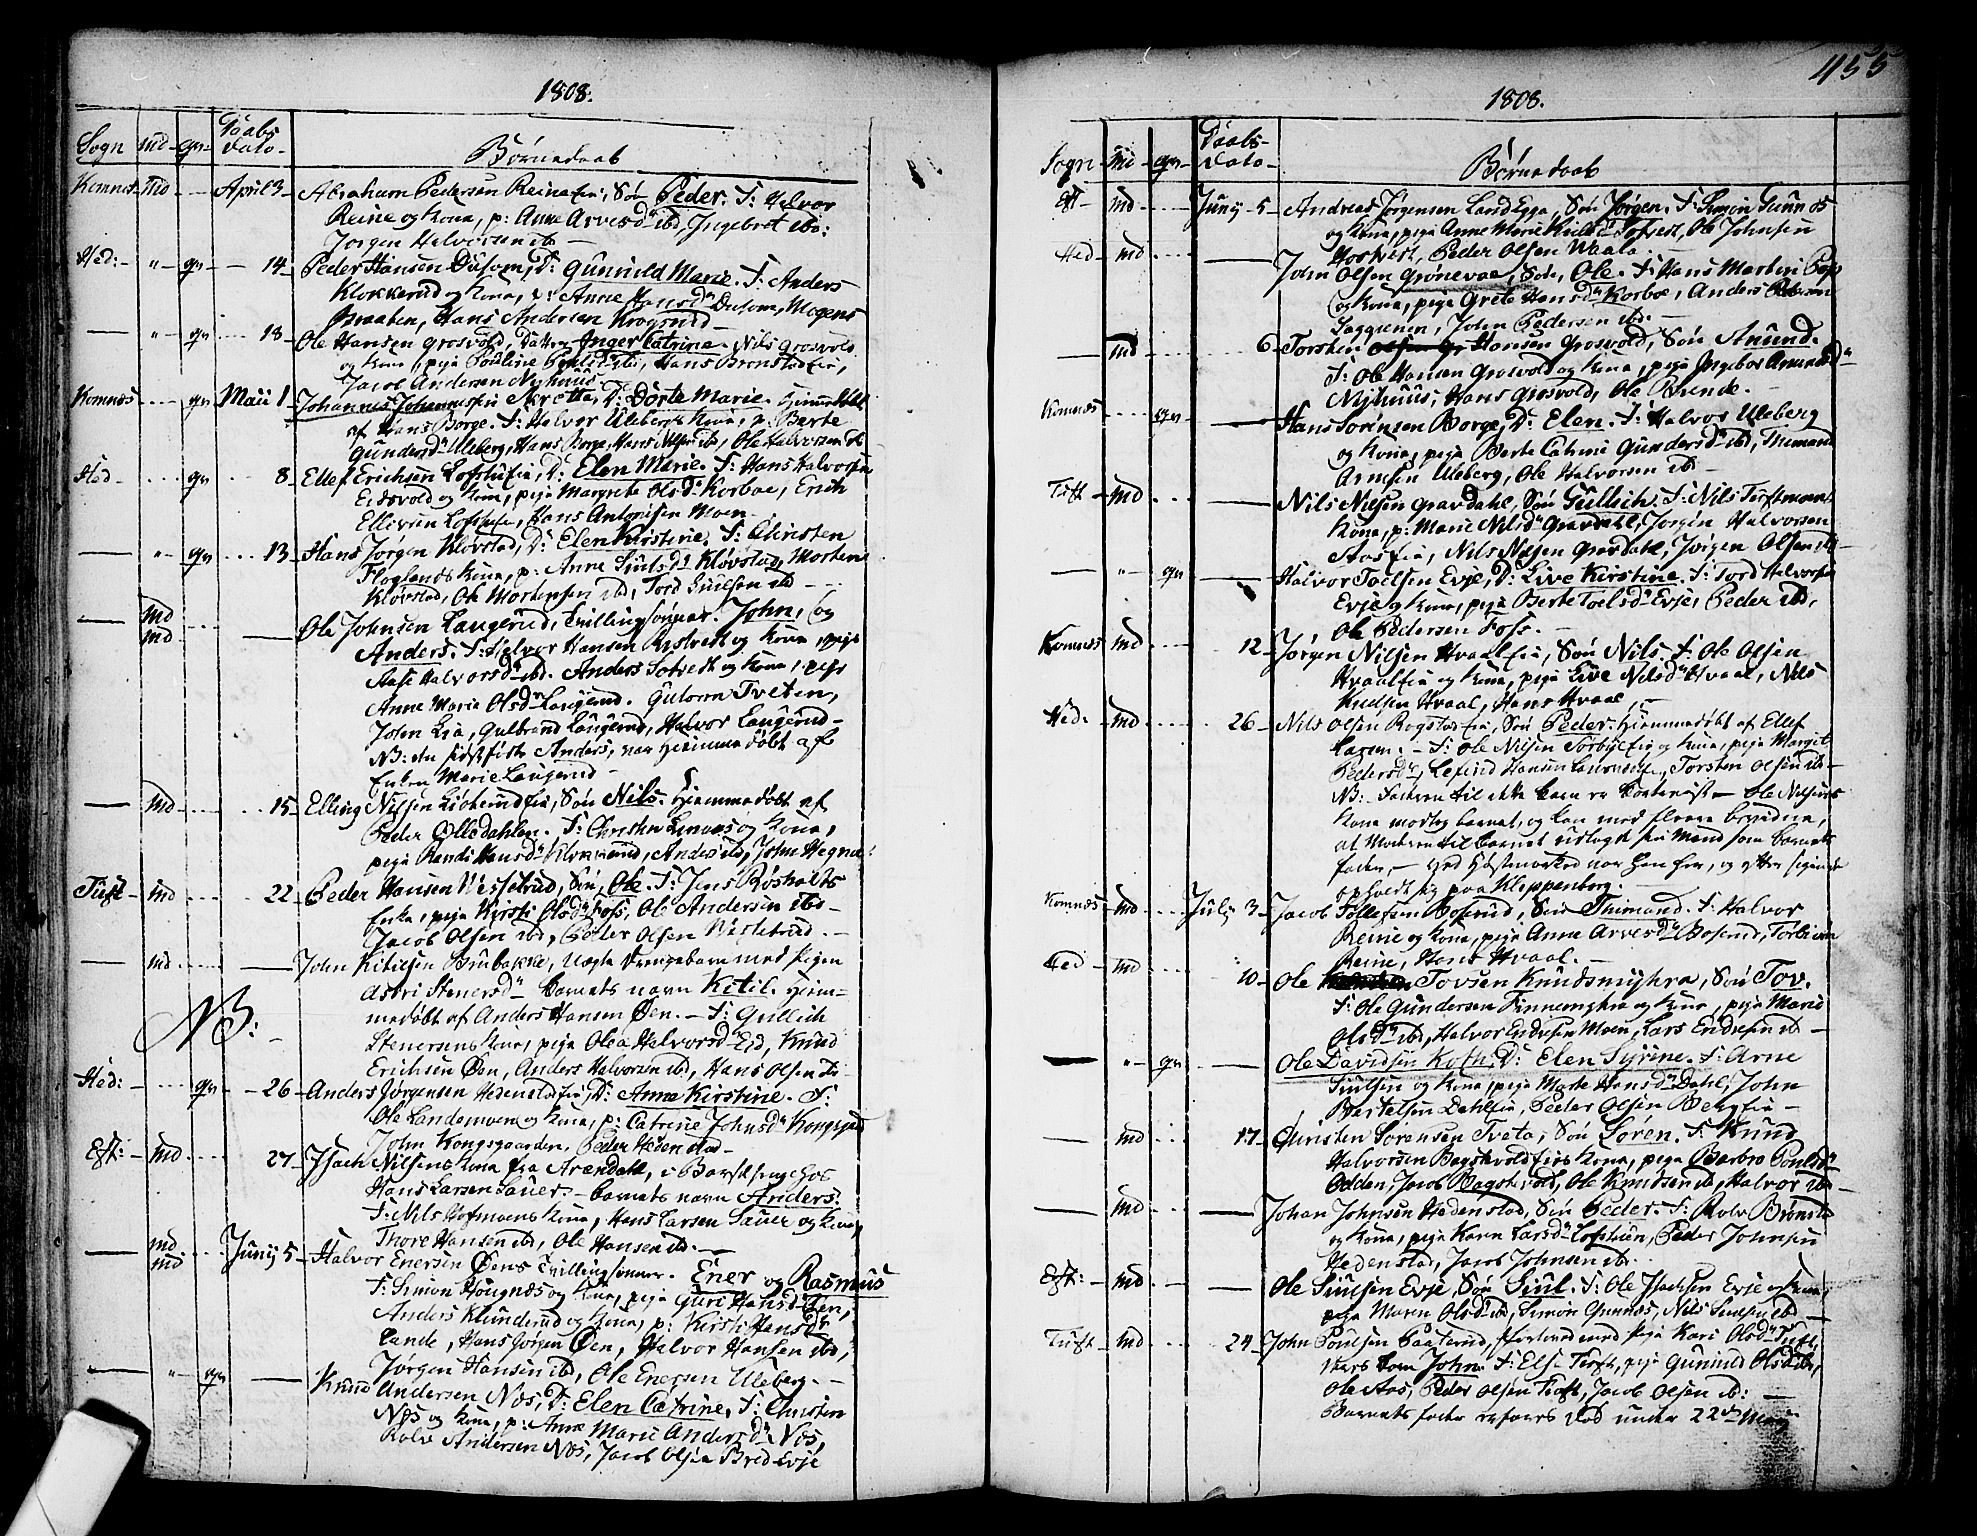 455
1808.
Daabs
Sogn md qv dato
Børnedaab
Komnes md April 3 Abraham Pedersen Reinaeie, Søn Peder. F: Halvor
Reine og Kona, p: Anne Arvesd ibd, Ingebret ibd:
Jørgen Halvorsen ibd
Hed: " qv 14 Peder Hansen Dusom, D: Gunnild Marie. F: Anders
Klokkerud og Kona, p: Anne Hansd Dusom, Mogens
Braaten, Hans Andersen Krogsrud
" qv 18 Ole Hansen Grosvold, Datter Inger Catrine. Nils Grosvold
og Kona, piga Hans Brønstadeie,
Jacob Andersen Nyhuus
Komnes qv Maii 1 Johannes Johannesen Skretta, D: Dorte Marie. Hiemmedøbt
af Hans Borge. F: Halvor Ulebergs Kona, p: Berte
Gundersd Uleberg, Hans Borge, Hans Nilsen ibd, Ole Halvorsen ibd
Hed qv 8 Ellef Erichsen Lofthuseie, D: Elen Marie. F: Hans Halvorsen
Eidsvold og Kona, piga Margrete Olsd Korboe, Erich
Ellevsen, Hans Antonisen Moen
" qv 13 Hans Jørgen Kløvstad, D: Elen Kirstine. F: Christen
Floglands Kona, p: Anne Siulsd Kløvstad, Morten
Kløvstad, Ole Mortensen ibd, Tord Siulsen ibd
md
md Ole Johnsen Laugerud, Tvillingsønner. John, og
Anders. F: Halvor Hansen og Kona, piga
Aase Halvorsd ibd. Anders Sotvedt og Kona, piga
Anne Marie Olsd Laugerud. Guttorm Tveten,
John Lia, Gulbrand Laugerud, Halvor Laugerud
NB: den sidstfødte Anders, var hiemmedøbt af
Enken Marie Laugerud
md 15 Elling Nilsen, Søn Nils. Hiemmedøbt af
Peder Olledahlen. F: Christen og Kona,
piga Randi Hansd Klokkerud, Anders ibd, John Hegna:
Tuft md 22 Peder Hansen Westebrud, Søn, Ole. F: Jens Røsholts
Enke, piga Kirsti Olsd Foss, Ole Andersen ibd
Jacob Olsen ibd, Peder Olsen Westebrud.
md John Kitilsen Brubakke, uægte Drengebarn med Pigen
Astri Stenersd Barnets navn Kitil. Hiem-
medøbt af Anders Hansen Øen. F: Gullich
NB:
Stenersens Kona, piga Olea Halvorsd Eid, Knud
Erichsen Øen, Anders Halvorsen ibd, Hans Olsen ibd
Hed: qv 26 Anders Jørgensen Hedenstadeie, D: Anne Kirstine. F:
Ole Landemoen og Kona, p: Catrine Johnsd Kongsgaard
John Kongsgaarden, Peder Hedenstad
Eft: md 27 Isach Nilsens Kona fra Arendahl, i Barselseng hos
Hans Larsen Sauer. Barnets navn Anders.
F: Nils Hofmoens Kona, Hans Larsen Sauer og Kona,
Thore Hansen ibd, Ole Hansen ibd.
md
md Juny 5 Halvor Enersen Øens Tvillingsønner. Ener og Rasmus
F: Simon Hougnæs og Kona, piga Guri Hansd Øen,
Anders Klunderud og Kona, p: Kirsti Hansd
Lande, Hans Jørgen Øen, Halvor Hansen ibd,
Jørgen Hansen ibd, Ole Enersen Uleberg.
" qv Knud Andersen Næs, D: Elen Catrine. F: Christen
Næs og Kona, p: Anne Marie Andersd Næs,
Rolv Andersen Næs, Jacob Olsen Bred Evje
1808.
Daabs-
Sogn md qv dato
Børnedaab
Eft md Juny 5 Andreas Jørgensen Landegge, Søn Jørgen. F: Simon Gunnæs
og Kona, piga Anne Marie Sotvedt, Ole Johnsen
Peder Olsen Waala
Hed md John Olsen Grønevae, Søn, Ole. F: Hans Morten
og Kona, piga Grete Hansd Korboe, Anders Pedersen
John Pedersen ibd.
md 6 Torsten Hansen Grosvold, Søn Anund.
F: Ole Hansen Grosvold og Kona, piga Ingebor Anundsd
Nyhuus, Hans Grosvold, Ole Brende.
Komnes qv Hans Sørensen Borge, D: Elen. F: Halvor Uleberg
og Kona, piga Berte Catrine Gundersd ibd, Thimand
Arnesen Uleberg, Ole Halvorsen ibd
Tuft md Nils Nilsen Gravdahl, Søn Gullich. F: Nils Tuftmoens
Kona, p: Marie Nilsd Gravdahl, Jørgen Halvorsen
Aaseie, Nils Nilsen Gravdahl, Jørgen Olsen ibd
" qv Halvor Toelsen Evje, D: Live Kirstine. F: Tord Halvorsen
Evje og Kona, piga Berte Toelsd Evje, Peder ibd,
Ole Pedersen Foss.
Komnes md 12 Jørgen Nilsen Hvaaleie, Søn Nils. F: Ole Olsen
Hvaaleie og Kona, piga Live Nilsd Hvaal, Nils
Knudsen Hvaal, Hans Hvaal,
Hed: md 26 Nils Olsen Rogstadeie, Søn Peder. Hiemmedøbt af Ellef
Larsen. F: Ole Nilsen og Kona, piga Margit
Pedersd, Hansen, Torsten Olsen ibd
NB: Faderen til dette Barn er Ole Nilsens
Kona modtog barnet, og kan med fleere bevidne,
at Moderen til barnet udlagde sin Mand som barnets
fader, ved var han her, og efter sigende
opholdt sig paa Kloppenborg.
Komnes md July 3 Jacob Tollefsen Boserud, Søn Thimand. F: Halvor
Reine og Kona, piga Anne Arvesd Boserud, Torbiørn
Reine, Hans Hvaal.
Hed md 10 Ole Tovsen Knudsmyhra, Søn Tov.
F: Ole Gundersen Finnemyhra og Kona, piga Marie
Olsd ibd, Halvor Endresen Moen, Lars Endresen ibd
" qv Ole Davidsen Koth, D: Elen Syrine. F: Arne
Siulsen og Kona, piga Marte Hansd Dahl, John
Bertelsen Dahleie, Peder Olsen Bergeie
md 17 Christen Sørensen Tveta, Søn Søren. F: Knud
Halvorsen Bagstevoldeies Kona, piga Barbro Poulsd
Odden, Jacob Bagstevold, Ole Knudsen ibd, Halvor ibd
md Johan Johnsen Hedenstad, Søn Peder. F: Rolv Brønstad
og Kona, piga Karen Larsd Lofthuen, Peder Johnsen
Hedenstad, Jacob Johnsen ibd.
Eft: md Ole Siulsen Evje, Søn Siul. F: Ole Isachsen Evje og Kona,
piga Maren Olsd ibd, Simon Gunnæs, Nils Siulsen ibd
Tuft md 24 John Poulsen Paaterud, forlovet med piga Kari Olsd Tuft,
deres barn John. F: Els Tuft, piga Gunild Olsd ibd,
Ole Aas, Peder Olsen Tuft, Jacob Olsen ibd:
Barnets fader erfares død under 22de Maij